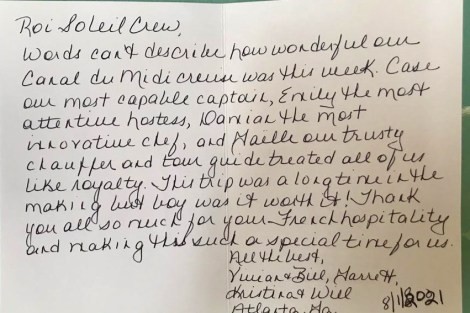 Roi Soleil Crew,
Words can't describe how wonderful our
Canal du Midi cruise was this week. Case
our most capable captain, Emily the most
attentive hostess, Damian the most
innovative chef, and Maille our trusty
chauffer and tour guide treated all of us
like royalty. This trip was a long time in the
making but boy was it worth it! Thank
you all so much for your French hospitality
and making this such a special time for us.
All the best,
Vivian & Bill, Harrett,
Kristina & Will
Atlanta, Ga.
8/1/2021